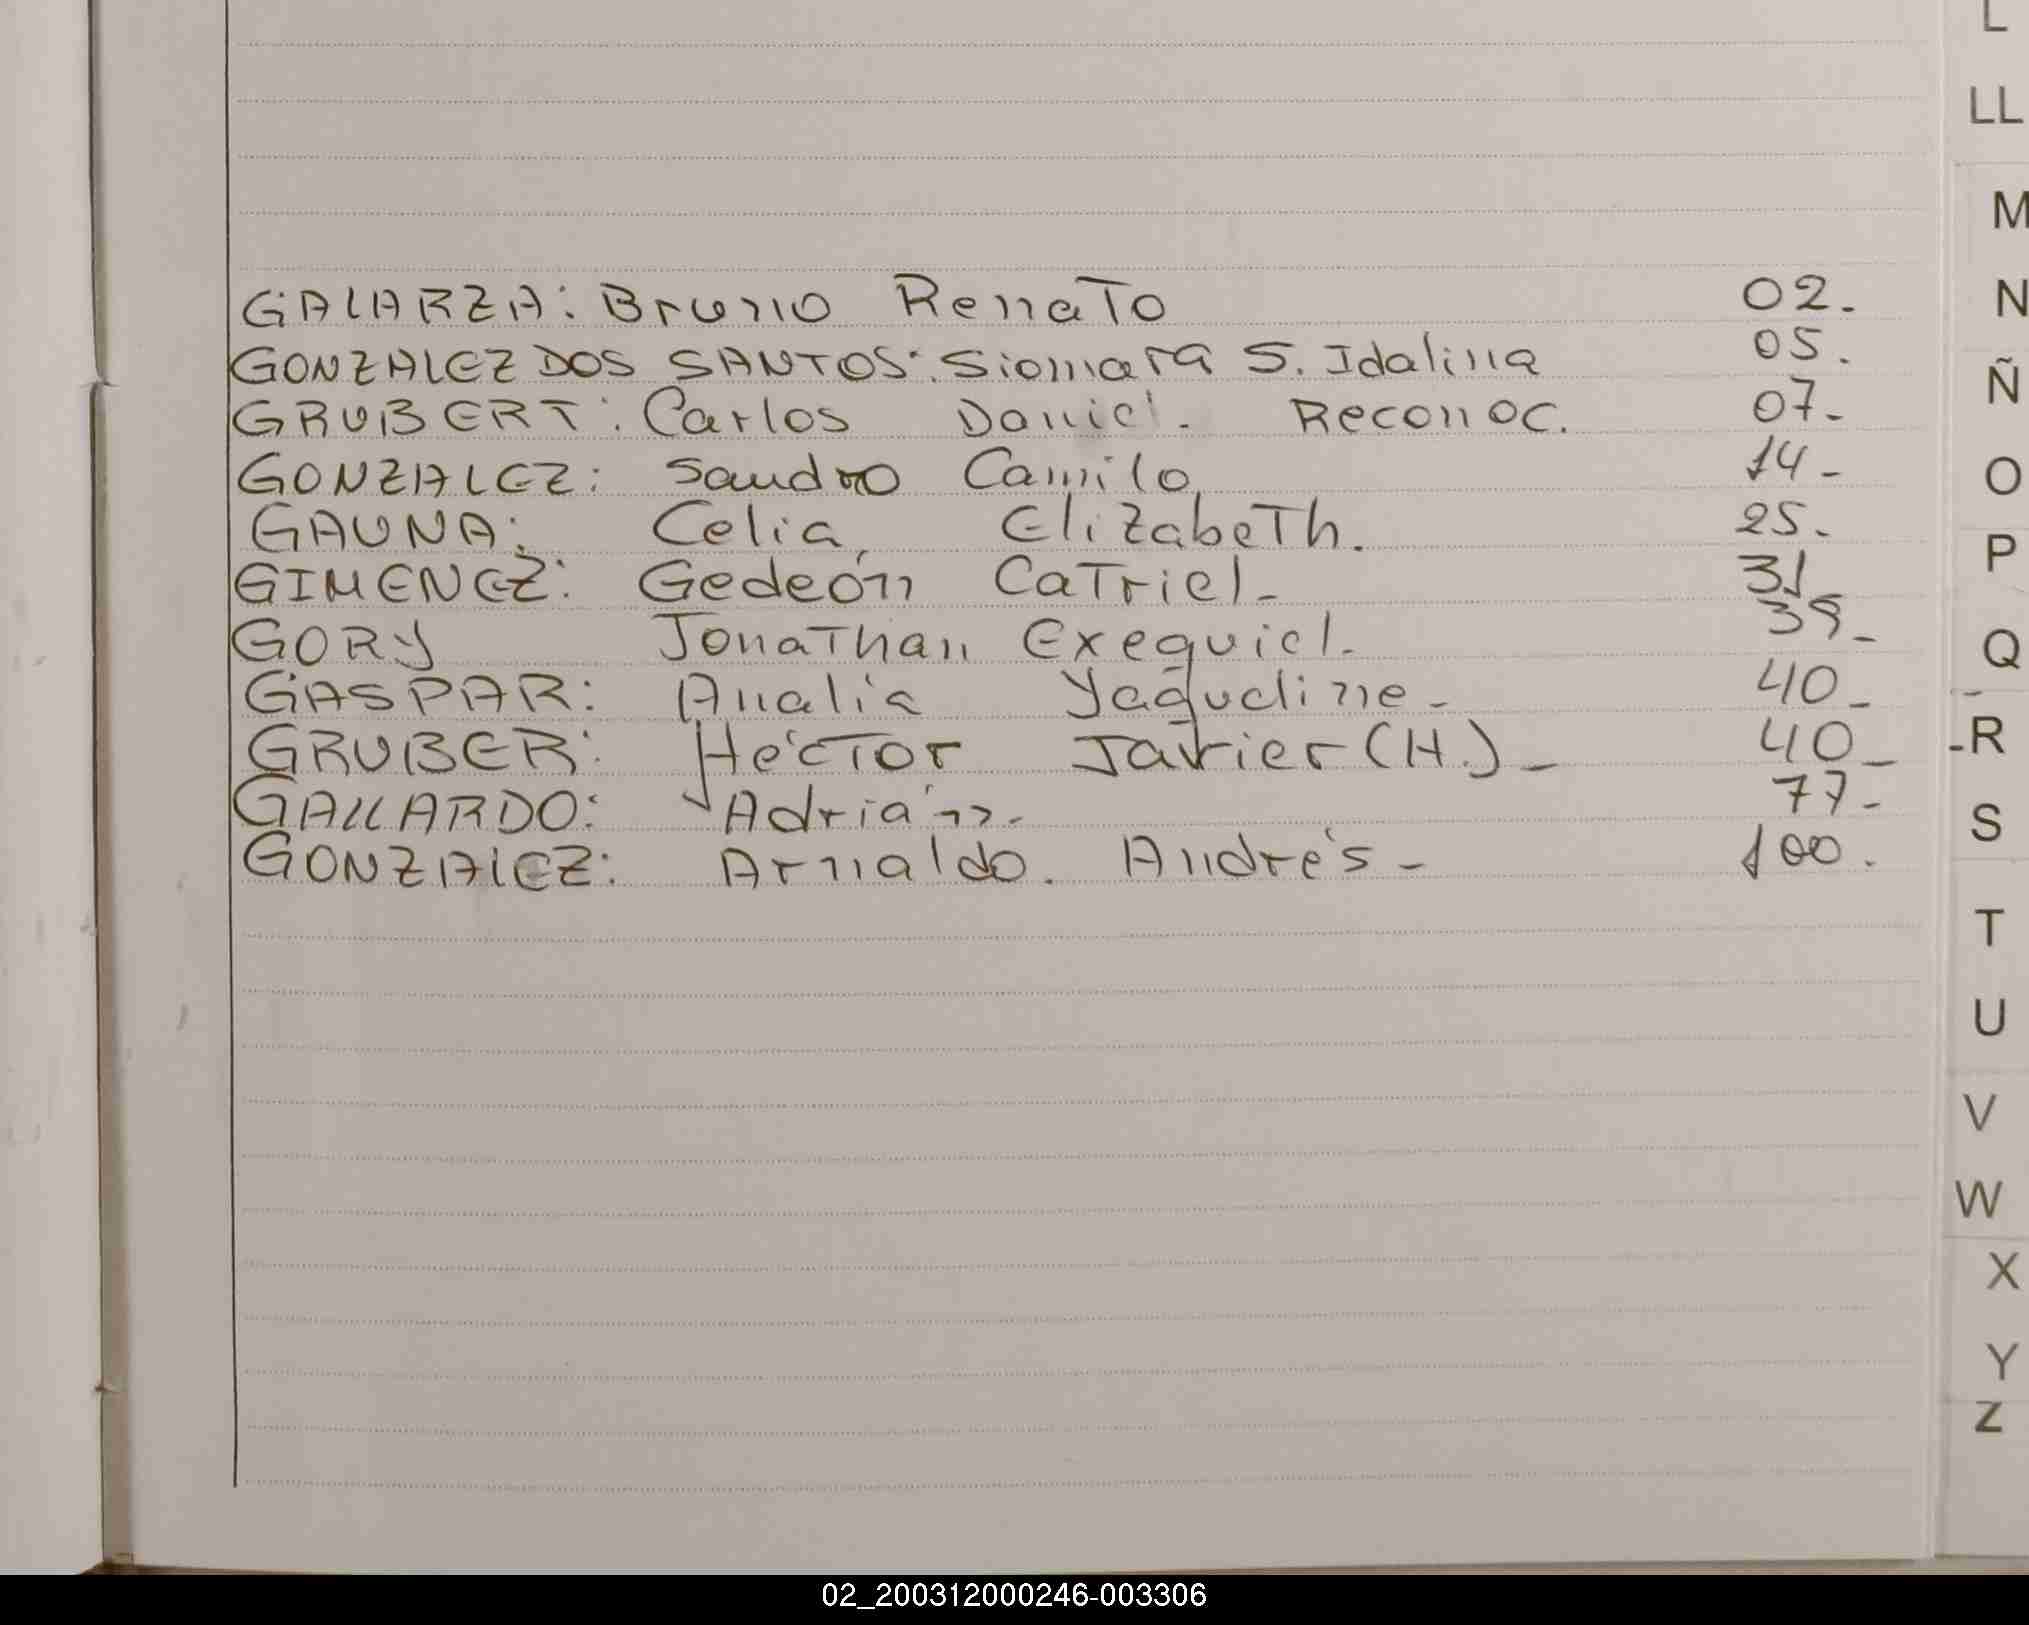 L
LL
M
N
Ñ
O
P
Q
R
S
T
U
V
W
X
Y
Z
GALARZA: Bruno Renato 02.
GONZALEZ DOS SANTOS: Siomara S. Idalina 05.
GRUBERT: Carlos Daniel. Reconoc. 07-
GONZALEZ: Sandro Camilo 14-
GAUNA: Celia, Elizabeth. 25.
GIMENEZ: Gedeón Catriel- 31
GORY Jonathan Exequiel- 39-
GASPAR: Analía Yaqueline- 40-
GRUBER: Héctor Javier (H.)- 40-
GALLARDO: Adrián- 77-
GONZALEZ: Arnaldo. Andrés- 100.
02_200312000246-003306